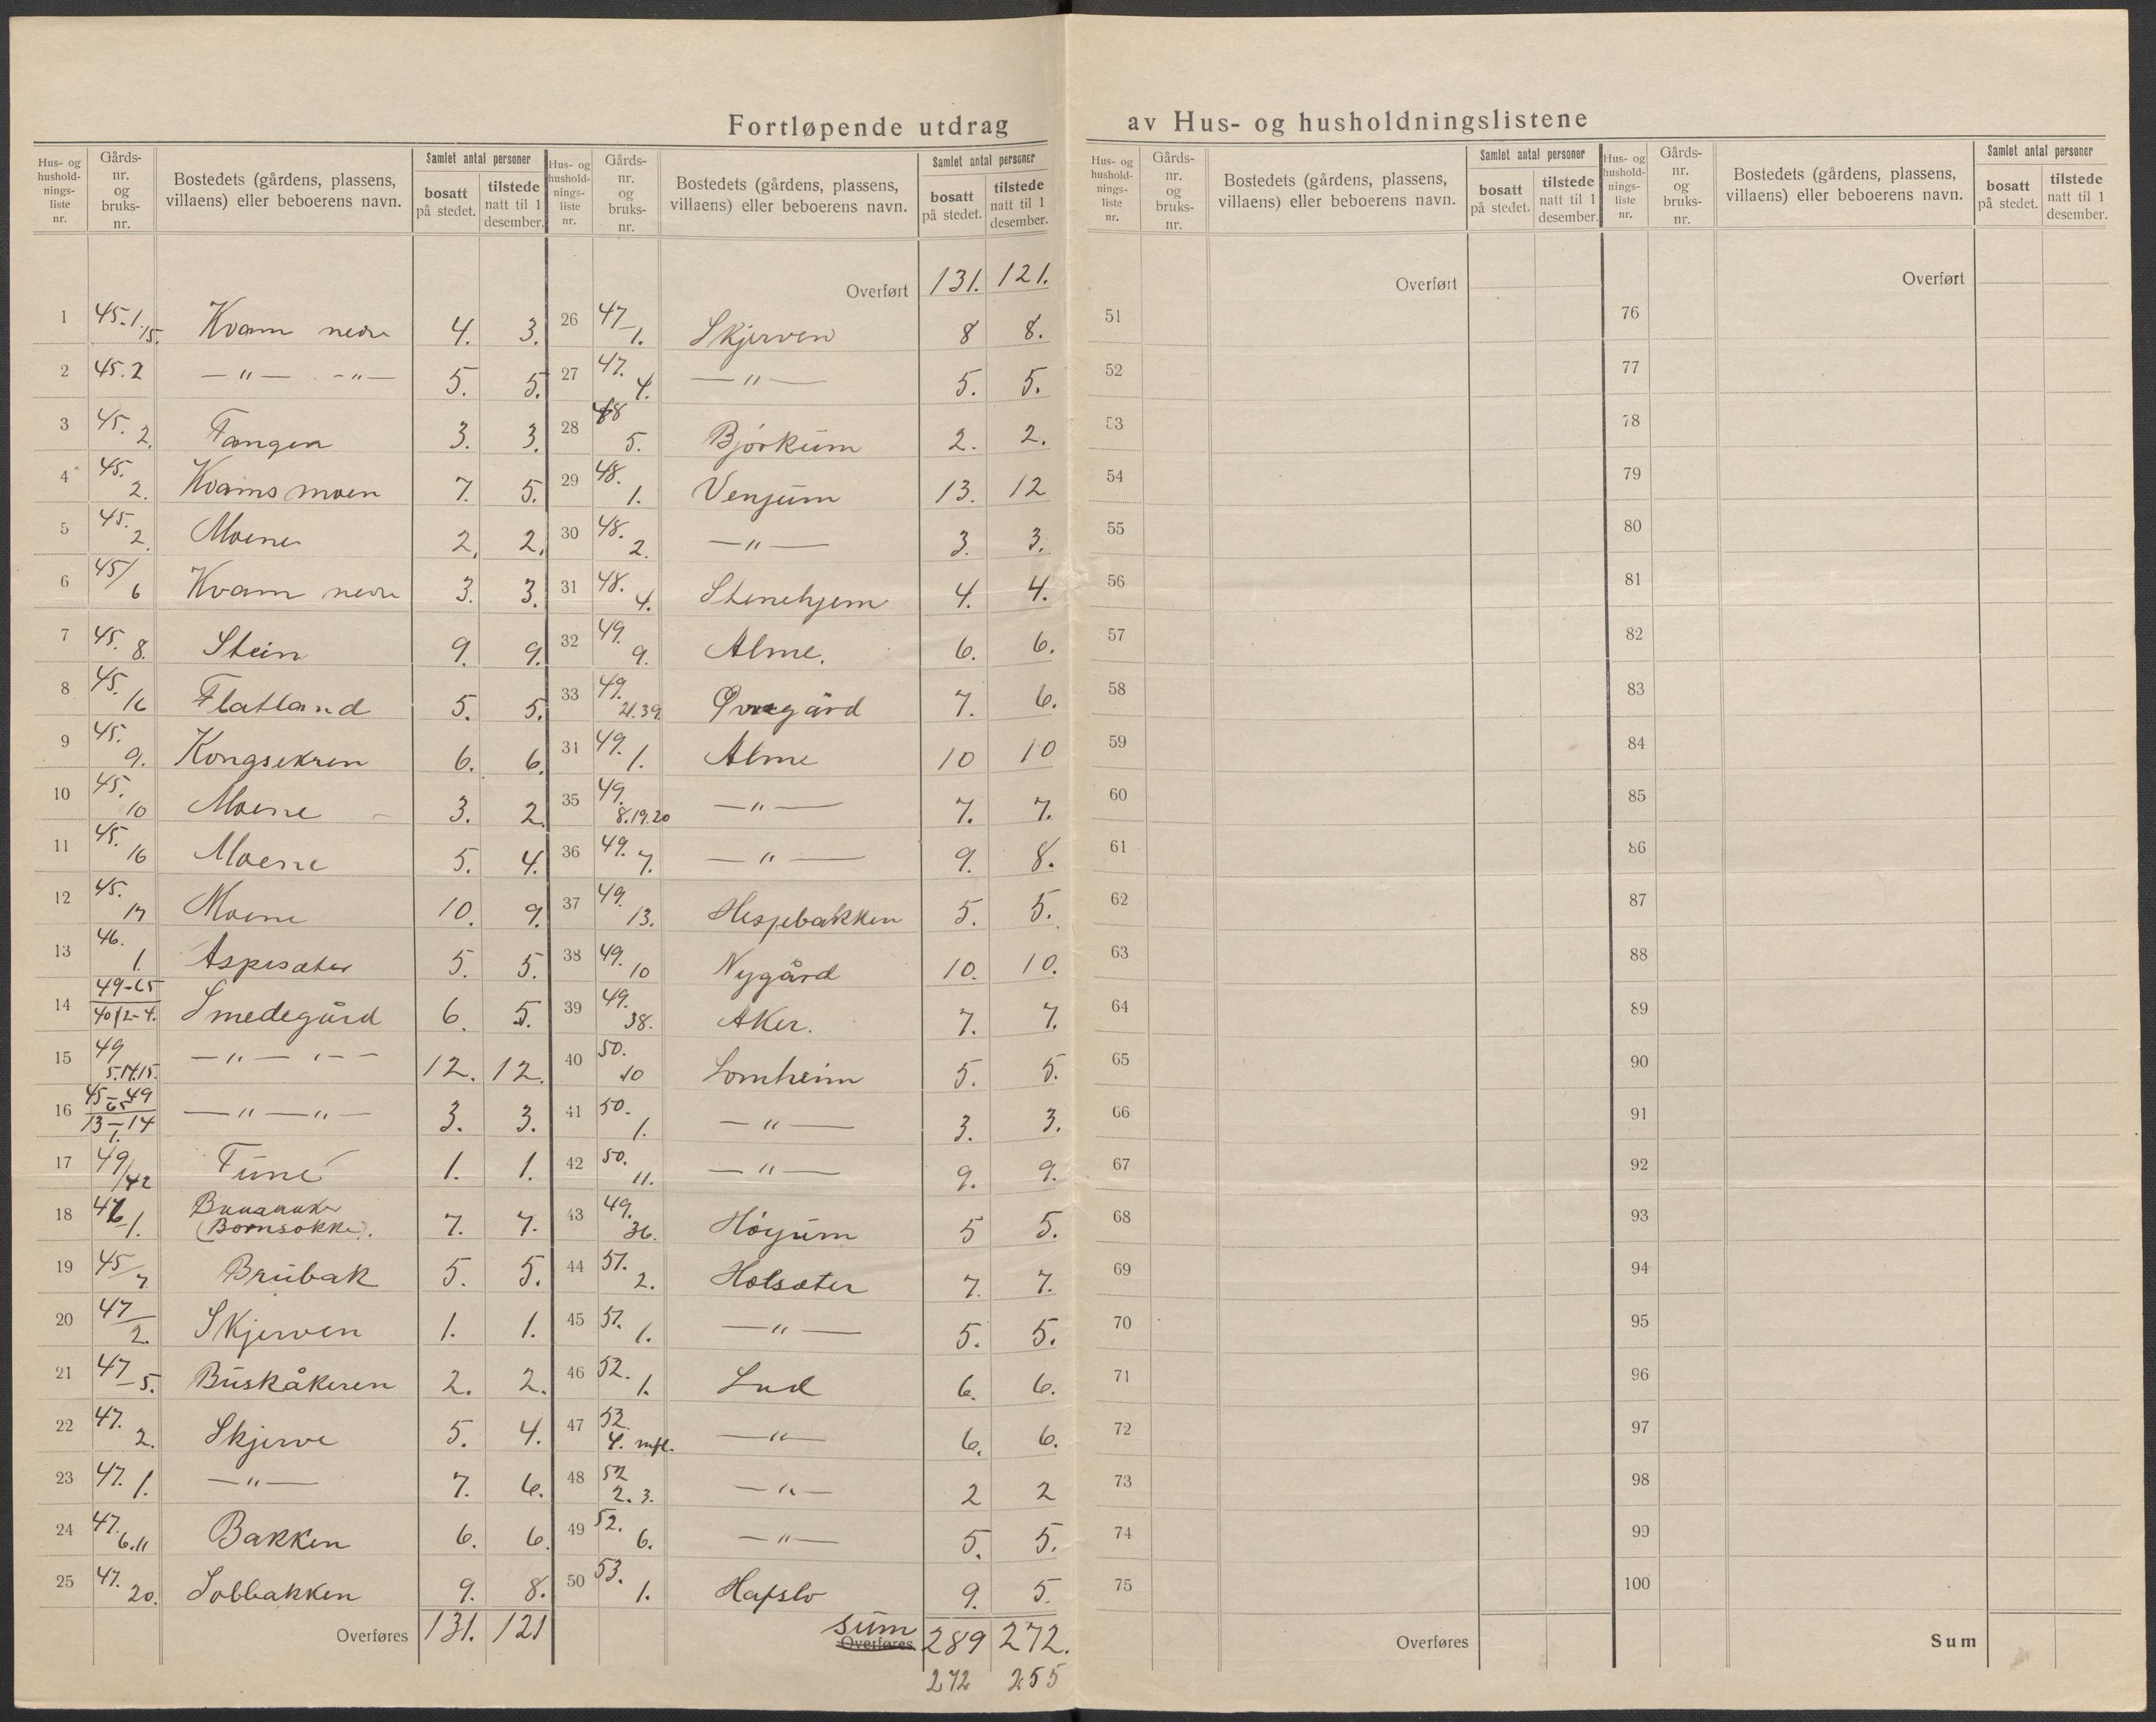 Fortløpende utdrag av Hus- og husholdningslistene
Hus- og hushold-nings-liste nr. | Gårds-nr. og bruks-nr. | Bostedets (gårdens, plassens, villaens) eller beboerens navn. | Samlet antal personer | bosatt på stedet. | tilstede natt til 1 desember.
1 45-1.15. Kvam nedre 4. 3.
2 45.2 —"— . -"— 5. 5.
3 45. 2. Fangen 3. 3.
4 45. 2. Kvamsmoen 7. 5.
5 45. 2. Moene 2. 2.
6 45/6 Kvam nedre 3. 3.
7 45. 8. Stein 9. 9.
8 45. 16 Flatland 5. 5.
9 45. 9. Kongsekren 6. 6.
10 45. 10 Moene 3. 2.
11 45. 16 Moene 5. 4.
12 45. 17 Moene 10. 9.
13 46. 1. Aspesæter 5. 5.
14 49-65 40/2-4. Smedegård 6. 5.
15 49 5.14.15. —"— 12. 12.
16 45-49 65 13-14 1. —"—"— 3. 3.
17 49/42 Tune 1. 1.
18 1. (Bornsokke). 7. 7.
19 45/7. Brubak 5. 5.
20 47/2. Skjerven 1. 1.
21 47-5. Buskåkeren 2. 2.
22 47. 2. Skjerve 5. 4.
23 47. 1. —"— 7. 6.
24 47. 6.11 Bakken 6. 6.
25 47. 20. Solbakken 9. 8.
Overføres 131. 121
Hus- og hushold-nings-liste nr. | Gårds-nr. og bruks-nr. | Bostedets (gårdens, plassens, villaens) eller beboerens navn. | Samlet antal personer | bosatt på stedet. | tilstede natt til 1 desember.
Overført 131. 121.
26 47-1. Skjerven 8 8.
27 47. 4. —"— 5. 5.
28 48 5. Bjørkum 2. 2.
29 48. 1. Venjum 13. 12
30 48. 2. —"— 3. 3.
31 48. 4. Stenehjem 4. 4.
32 49. 9. Alme. 6. 6.
33 49. 21.39. Øvregård 7. 6.
34 49. 1. Alme 10 10
35 49. 8.19.20 —"— 7. 7.
36 49. 7. —"— 9. 8.
37 49. 13. Hesjebakken 5. 5.
38 49. 10 Nygård 10. 10.
39 49. 38. Aker. 7. 7.
40 50. 10 Lomheim 5. 5.
41 50. 1. —"— 3. 3.
42 50. 11. —"— 9. 9.
43 49. 36. Høyum 5 5.
44 51. 2. Holsæter 7. 7.
45 51. 1. —"— 5. 5.
46 52. 1. Lad 6. 6.
47 52. 4. mfl. —"— 6. 6.
48 52 2. 3. —"— 2 2
49 52. 6. —"— 5. 5.
50 53. 1. Hafslo 9. 5.
sum Overføres 289 272.
272 255
Hus- og hushold-nings-liste nr. | Gårds-nr. og bruks-nr. | Bostedets (gårdens, plassens, villaens) eller beboerens navn. | Samlet antal personer | bosatt på stedet. | tilstede natt til 1 desember.
Overført
51
52
53
54
55
56
57
58
59
60
61
62
63
64
65
66
67
68
69
70
71
72
73
74
75
Overføres
Hus- og hushold-nings-liste nr. | Gårds-nr. og bruks-nr. | Bostedets (gårdens, plassens, villaens) eller beboerens navn. | Samlet antal personer | bosatt på stedet. | tilstede natt til 1 desember.
Overført
76
77
78
79
80
81
82
83
84
85
86
87
88
89
90
91
92
93
94
95
96
97
98
99
100
Sum